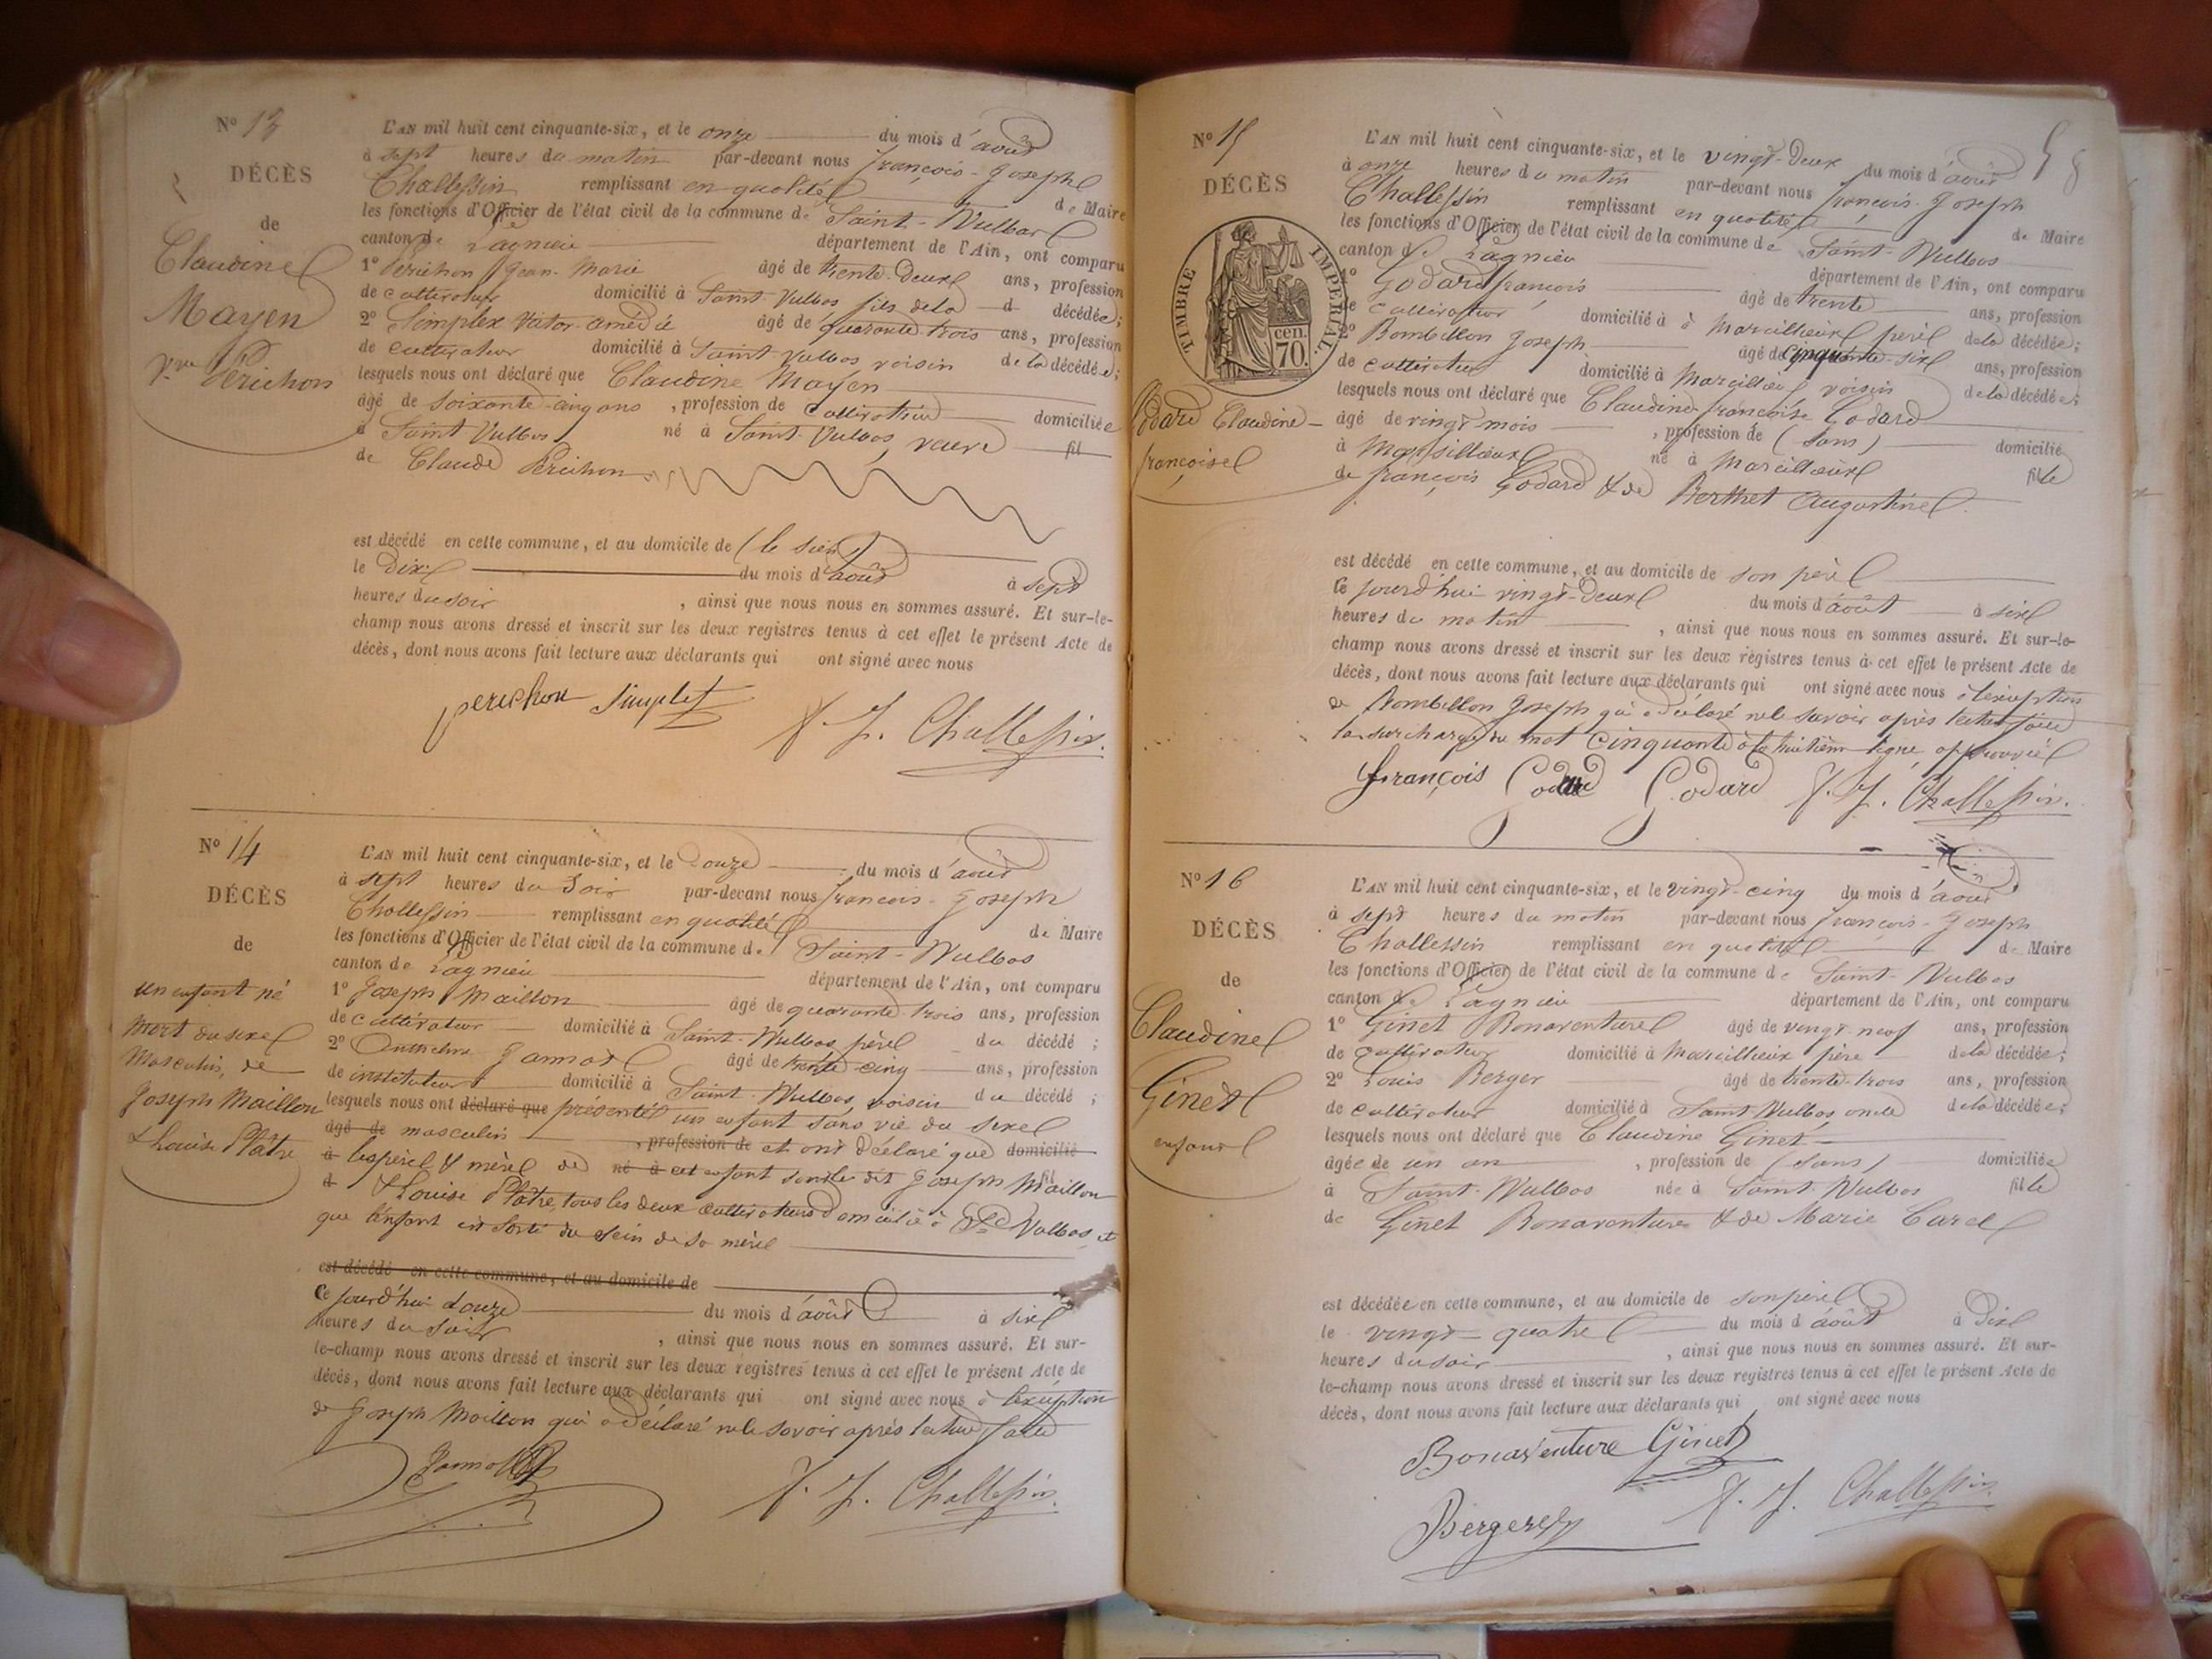 N° 13
DÉCÈS
de
Claudine
Mayen
vve Périchon
L'AN mil huit cent cinquante-six, et le onze du mois d'août
à sept heures du matin par-devant nous françois-Joseph
Challessin remplissant en qualité de Maire
les fonctions d'Officier de l'état civil de la commune de Saint-Vulbas
canton de Lagnieu département de l'Ain, ont comparu
1° Périchon Jean-Marie âgé de trente-deux ans, profession
de cultivateur domicilié à Saint-Vulbas fils de la d décédée;
2° Simplex Victor amédé âgé de quarante trois ans, profession
de cultivateur domicilié à Saint-Vulbas voisin de la décédée;
lesquels nous ont déclaré que Claudine Mayen
âgé de soixante-cinq ans, profession de cultivatrice domiciliée
à Saint Vulbas né à Saint-Vulbas, veuve fil
de Claude Périchon
est décédé en cette commune, et au domicile de (le sien)
le dix du mois d'août à sept
heures du soir, ainsi que nous nous en sommes assuré. Et sur-le-
champ nous avons dressé et inscrit sur les deux registres tenus à cet effet le présent Acte de
décès, dont nous avons fait lecture aux déclarants qui ont signé avec nous
perichon Simplex F. J. Challessin.
N° 14
DÉCÈS
de
un enfant né
mort du sexe
masculin, de
Joseph Maillon
& Louise Plâtre
L'AN mil huit cent cinquante-six, et le douze du mois d'août
à sept heures du soir par-devant nous françois-Joseph
Challessin remplissant en qualité de Maire
les fonctions d'Officier de l'état civil de la commune de Saint-Vulbas
canton de Lagnieu département de l'Ain, ont comparu
1° Joseph Maillon âgé de quarante-trois ans, profession
de cultivateur domicilié à Saint-Vulbas père du décédé;
2° Anthelme Jannot âgé de trente-cinq ans, profession
de instituteur domicilié à Saint-Vulbas, voisin du décédé;
lesquels nous ont déclaré que présenté un enfant sans vie du sexe
âgé de masculin, profession de et ont déclaré que domicilié
à les père & mère de né à cet enfant sont le dit Joseph Maillon fil
d & Louise Plâtre, tous les deux cultivateurs domicilié à St Vulbas, et
que l'enfant est sorti du sein de sa mère
est décédé en cette commune, et au domicile de
Ce jourd'hui douze du mois d'août à six
heures du soir, ainsi que nous nous en sommes assuré. Et sur-
le-champ nous avons dressé et inscrit sur les deux registres tenus à cet effet le présent Acte de
décès, dont nous avons fait lecture aux déclarants qui ont signé avec nous à l'exception
de Joseph Maillon qui a déclaré ne le savoir après lecture faite
Jannot F. J. Challessin.
58
N° 15
DÉCÈS
TIMBRE IMPERIAL
cen.
70.
Godard Claudine-
françoise
L'AN mil huit cent cinquante-six, et le vingt-deux du mois d'août
à onze heures du matin par-devant nous françois-Joseph
Challessin remplissant en qualité de Maire
les fonctions d'Officier de l'état civil de la commune de Saint-Vulbas
canton de Lagnieu département de l'Ain, ont comparu
1° Godard françois âgé de trente ans, profession
de cultivateur domicilié à à Marcillieux père de la décédée;
2° Bombillon Joseph âgé de cinquante-six ans, profession
de cultivateur domicilié à Marcillieux voisin de la décédée;
lesquels nous ont déclaré que Claudine françoise Godard
âgé de vingt mois, profession de (sans) domicilié
à Marsillieux né à Marcillieux fille
de françois Godard & de Berthet Augustine
est décédé en cette commune, et au domicile de son père
ce jourd'hui vingt-deux du mois d'août à six
heures du matin, ainsi que nous nous en sommes assuré. Et sur-le-
champ nous avons dressé et inscrit sur les deux registres tenus à cet effet le présent Acte de
décès, dont nous avons fait lecture aux déclarants qui ont signé avec nous à l'exception
de Bombillon Joseph qui a déclaré ne le savoir après lecture faite
la surcharge du mot cinquante à la huitième ligne approuvée
françois Godard Godard F. J. Challessin.
N° 16
DÉCÈS
de
Claudine
Ginet
enfant
L'AN mil huit cent cinquante-six, et le vingt-cinq du mois d'août
à sept heures du matin par-devant nous françois-Joseph
Challessin remplissant en qualité de Maire
les fonctions d'Officier de l'état civil de la commune de Saint-Vulbas
canton de Lagnieu département de l'Ain, ont comparu
1° Ginet Bonaventure âgé de vingt-neuf ans, profession
de cultivateur domicilié à Marcillieux père de la décédée;
2° Louis Berger âgé de trente-trois ans, profession
de cultivateur domicilié à Saint Vulbas, oncle de la décédée;
lesquels nous ont déclaré que Claudine Ginet
âgée de un an, profession de (sans) domiciliée
à Saint-Vulbas née à Saint-Vulbas fille
de Ginet Bonaventure & de Marie Curel
est décédée en cette commune, et au domicile de son père
le vingt-quatre du mois d'août à dix
heures du soir, ainsi que nous nous en sommes assuré. Et sur-
le-champ nous avons dressé et inscrit sur les deux registres tenus à cet effet le présent Acte de
décès, dont nous avons fait lecture aux déclarants qui ont signé avec nous
Bonaventure Ginet
Berger F. J. Challessin.